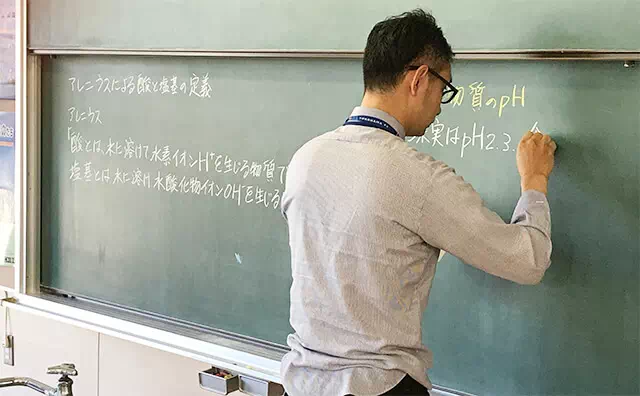 アレニウスによる酸と塩基の定義
アレニウス
「酸とは、水に溶けて水素イオンH⁺を生じる物質で
塩基とは水に溶け、水酸化物イオンOH⁻を生じる
物質のpH
果実はpH2.3.